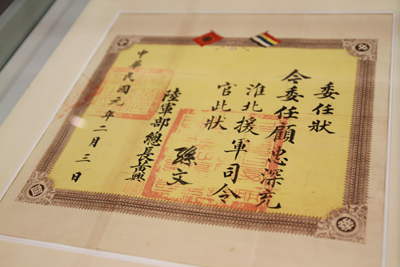 委任狀
令委任顧忠深充
淮北援軍司令
官此狀
孫文
陸軍部總長黃興
中華民國元年二月三日